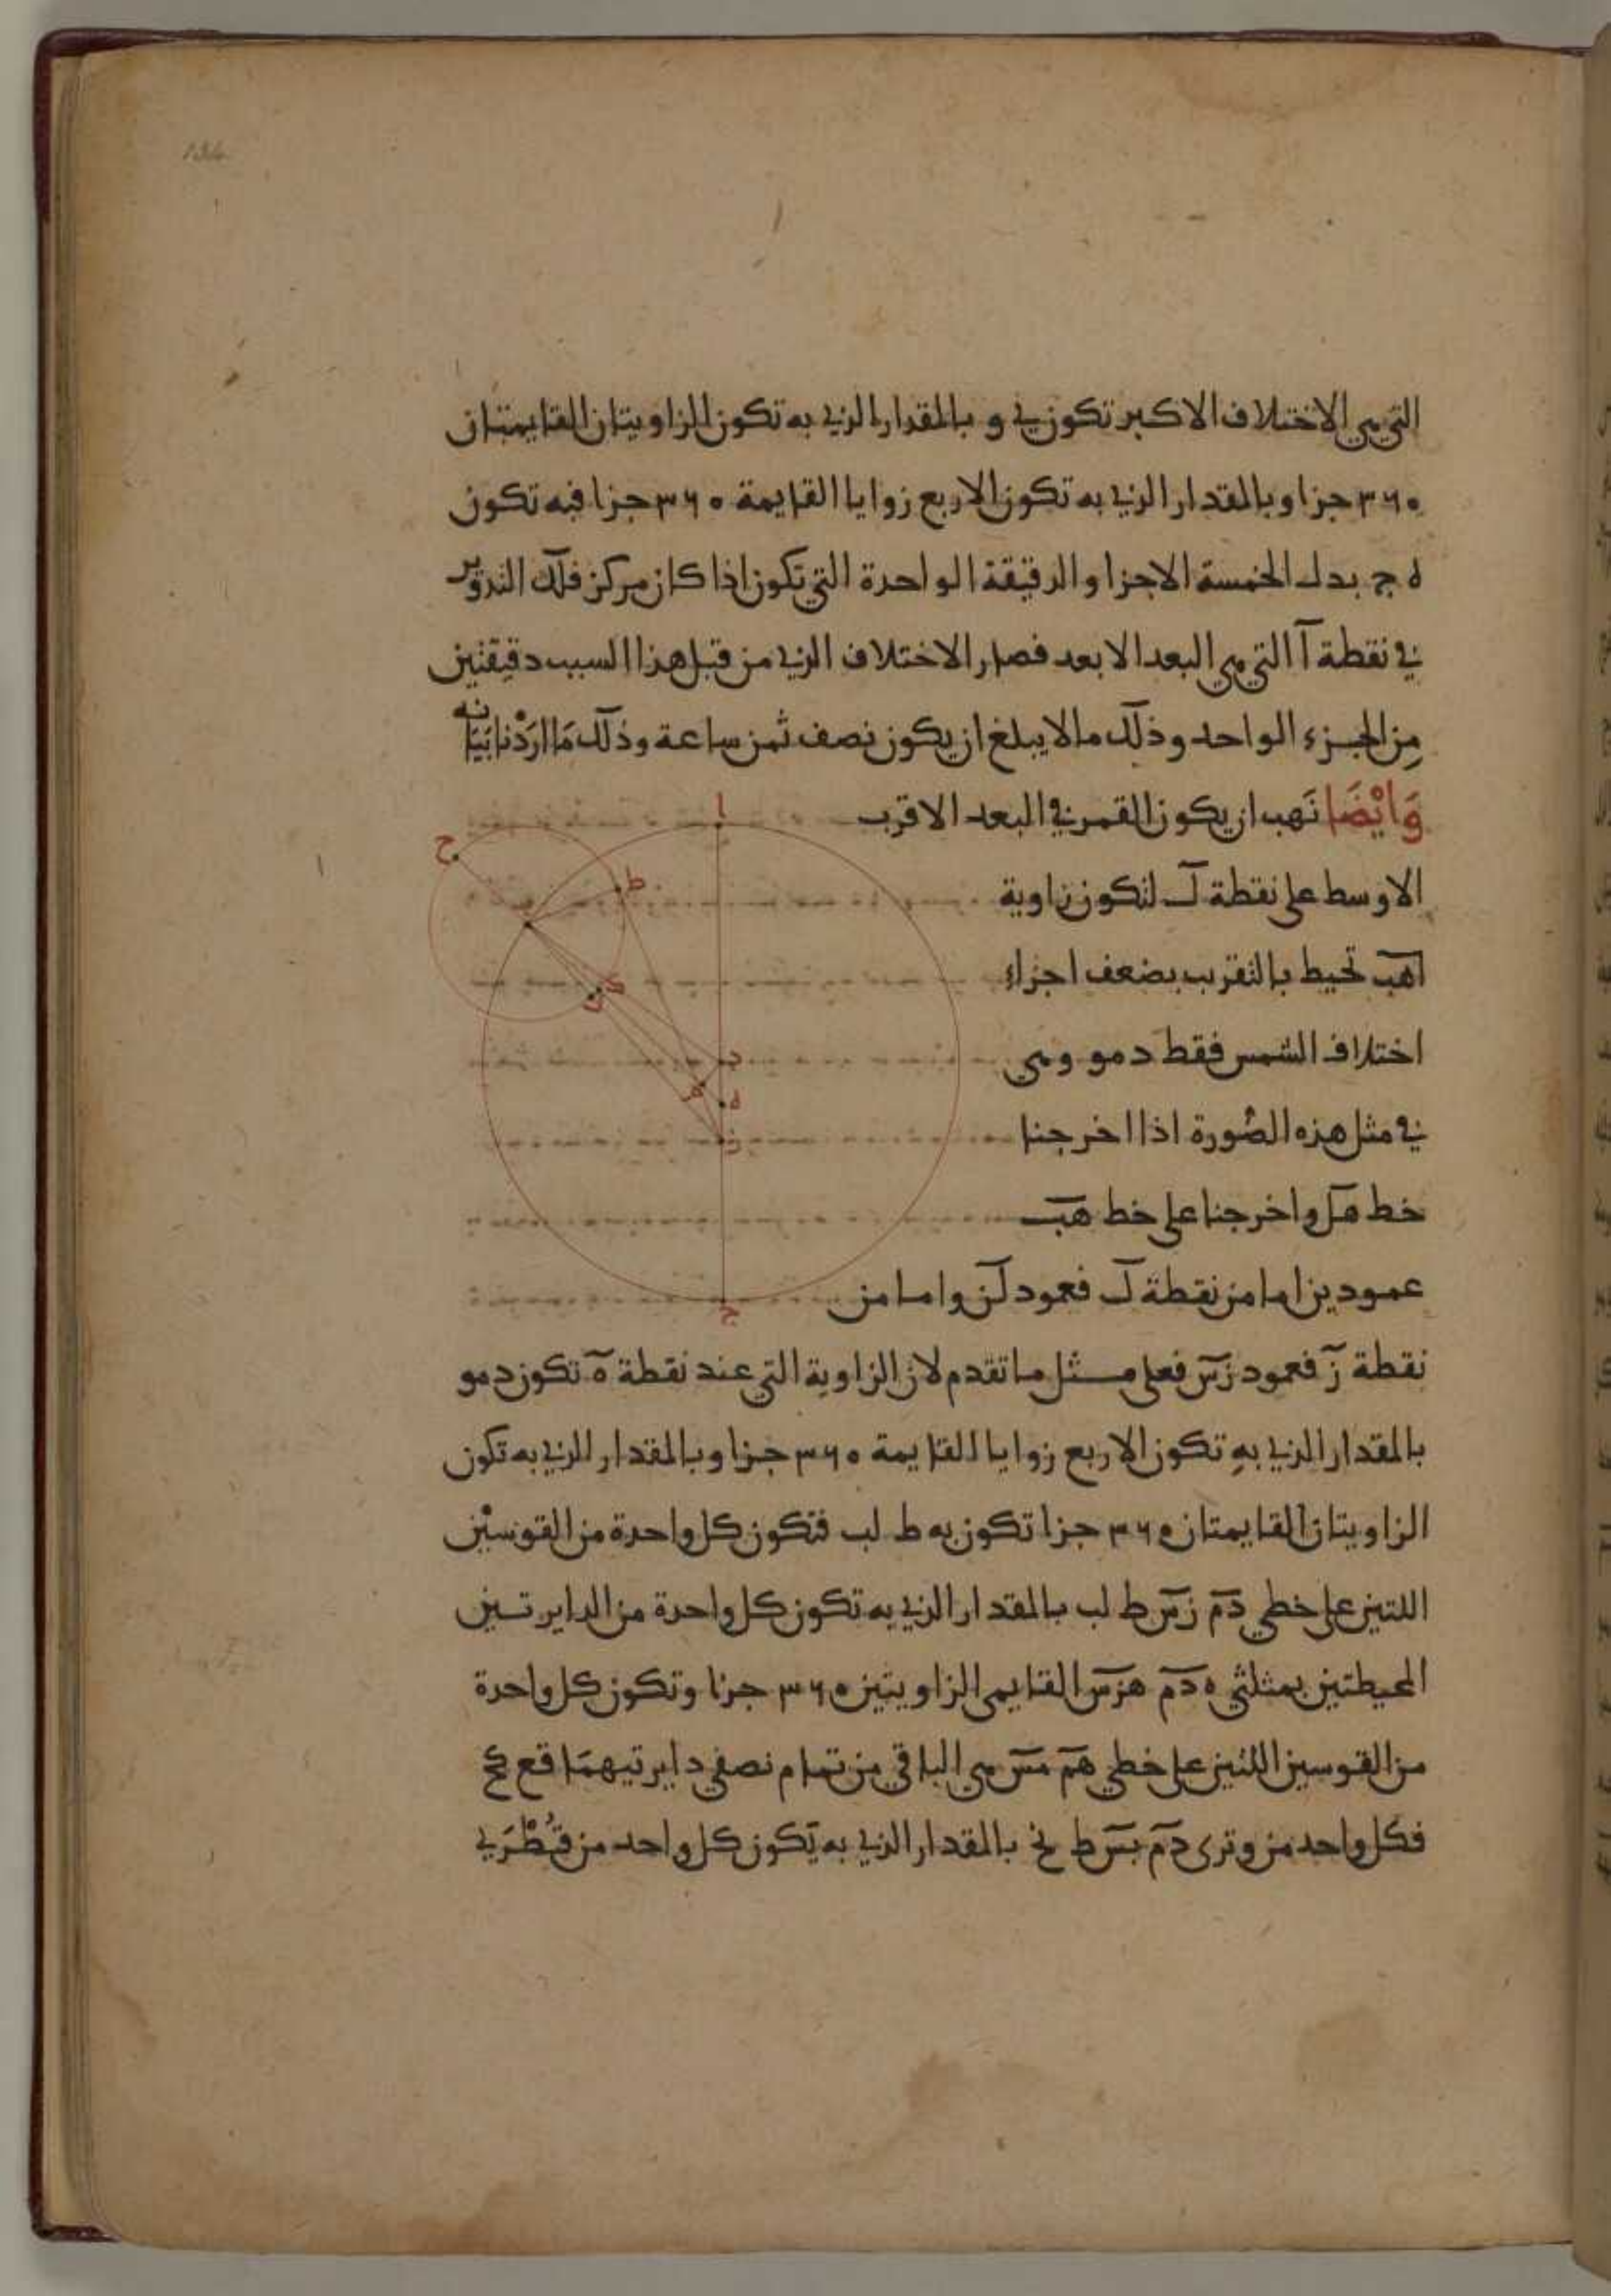 التي هي الاختلاف الاكبر تكون ي و بالمقدار الذي به تكون الزاويتان القايمتان
٣٦٠ جزا وبالمقدار الذي به تكون الاربع زوايا القايمة ٣٦٠ جزا فبه تكون
ه ج بدل الخمسة الاجزا والدقيقة الواحدة التي تكون اذا كان مركز فلك التدوير
في نقطة آ التي هي البعد الابعد فصار الاختلاف الذي من قبل هذا السبب دقيقتين
مِن الجزء الواحد وذلك ما لا يبلغ ان يكون نصف ثمن ساعة وذلك مَا ارَدْنا بَيَانه
وَايْضَا نَهب ان يكون القمر في البعد الاقرب
الاوسط على نقطة لَ لتكون زاوية
اهب تحيط بالتقريب بضعف اجزاء
اختلاف الشمس فقط د مو وهي
في مثل هذه الصُورة اذا اخرجنا
خط هل واخرجنا على خط هب
عمودين اما من نقطة لَ فعمود لن واما من
نقطة زَ فعمود زس فعلى مثل ما تقدم لان الزاوية التي عند نقطة هَ تكون د مو
بالمقدار الذي بهِ تكون الاربع زوايا القايمة ٣٦٠ جزا وبالمقدار الذي به تكون
الزاويتان القايمتان ٣٦٠ جزا تكون به ط لب فتكون كل واحدة من القوسيْن
اللتين على خطي دم زس ط لب بالمقدار الذي به تكون كل واحدة من الدايرتين
المحيطتين بمثلثي ه دم هزس القايمي الزاويتين ٣٦٠ جزا وتكون كل واحدة
من القوسين اللتين على خطي هم مس هي الباقي من تمام نصفي دايرتيهمَا قع كح
فكل واحد من وترى دم بس ط نح بالمقدار الذي به يَكون كل واحد من قُطْرَي
ا
ح
ط
ك
ل
د
م
ه
ز
ج